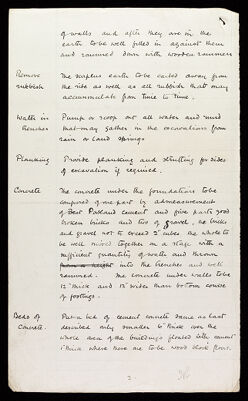 of walls and after they are in the
earth to be well filled in against them
and rammed down with wooden rammers
Remove rubbish
The surplus earth to be carted away from
the site as well as all rubbish that may
accummulate from time to time.
Water in trenches
Pump or scoop out all water and mud
that may gather in the excavations from
rain or land springs
Planking
Provide planking and strutting for sides
of excavation if required.
Concrete
The concrete under the foundations to be
composed of one part by admeasurement
of best Portland cement and five parts good
broken bricks and two of gravel, the bricks
and gravel not to exceed 2" cubes the whole to
be well mixed together on a stage with a
sufficient quantity of water and thrown
into the trenches and well
rammed. The concrete under walls to be
12" thick and 12" wider than bottom course
of footings.
Beds of Concrete.
Put a bed of cement concrete same as last
described only smaller 6" thick over the
whole area of the buildings floated with cement
1" thick where there are to be wood block floors.
2